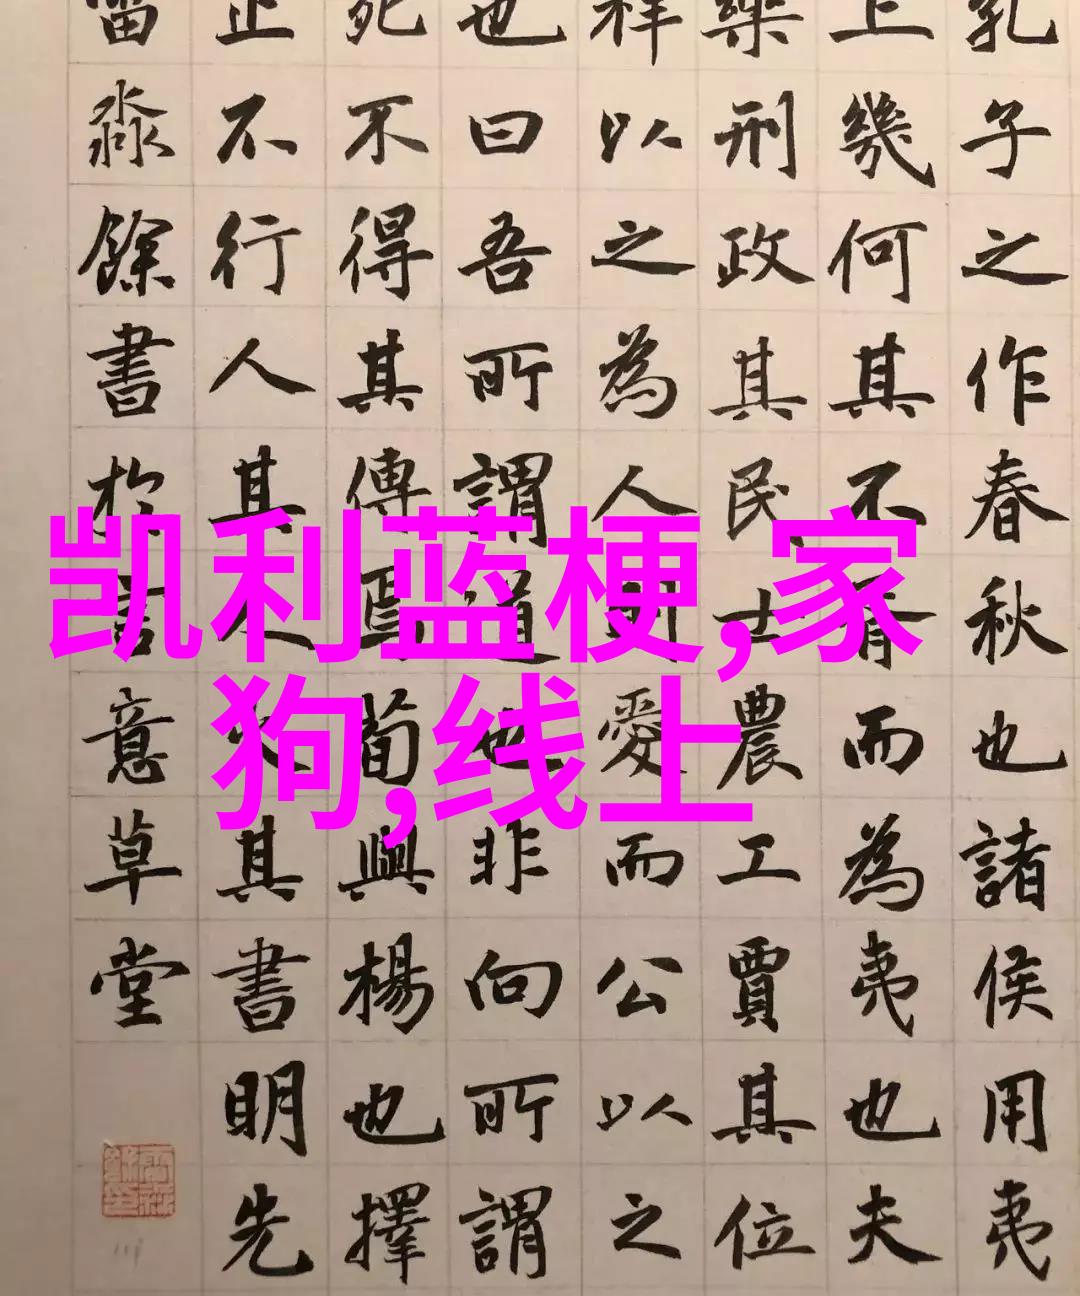 凯利蓝梗,家
狗,线上
孔子之作春秋也諸侯用夷
上幾何其不胥而為夷也夫
樂刑政其民士農工賈其位
祥以之為人則愛而公以之
也曰吾所謂道也非向所謂
死不得其傳焉荀與楊也擇
止不行人其人火其書明先
淼餘書於意草堂